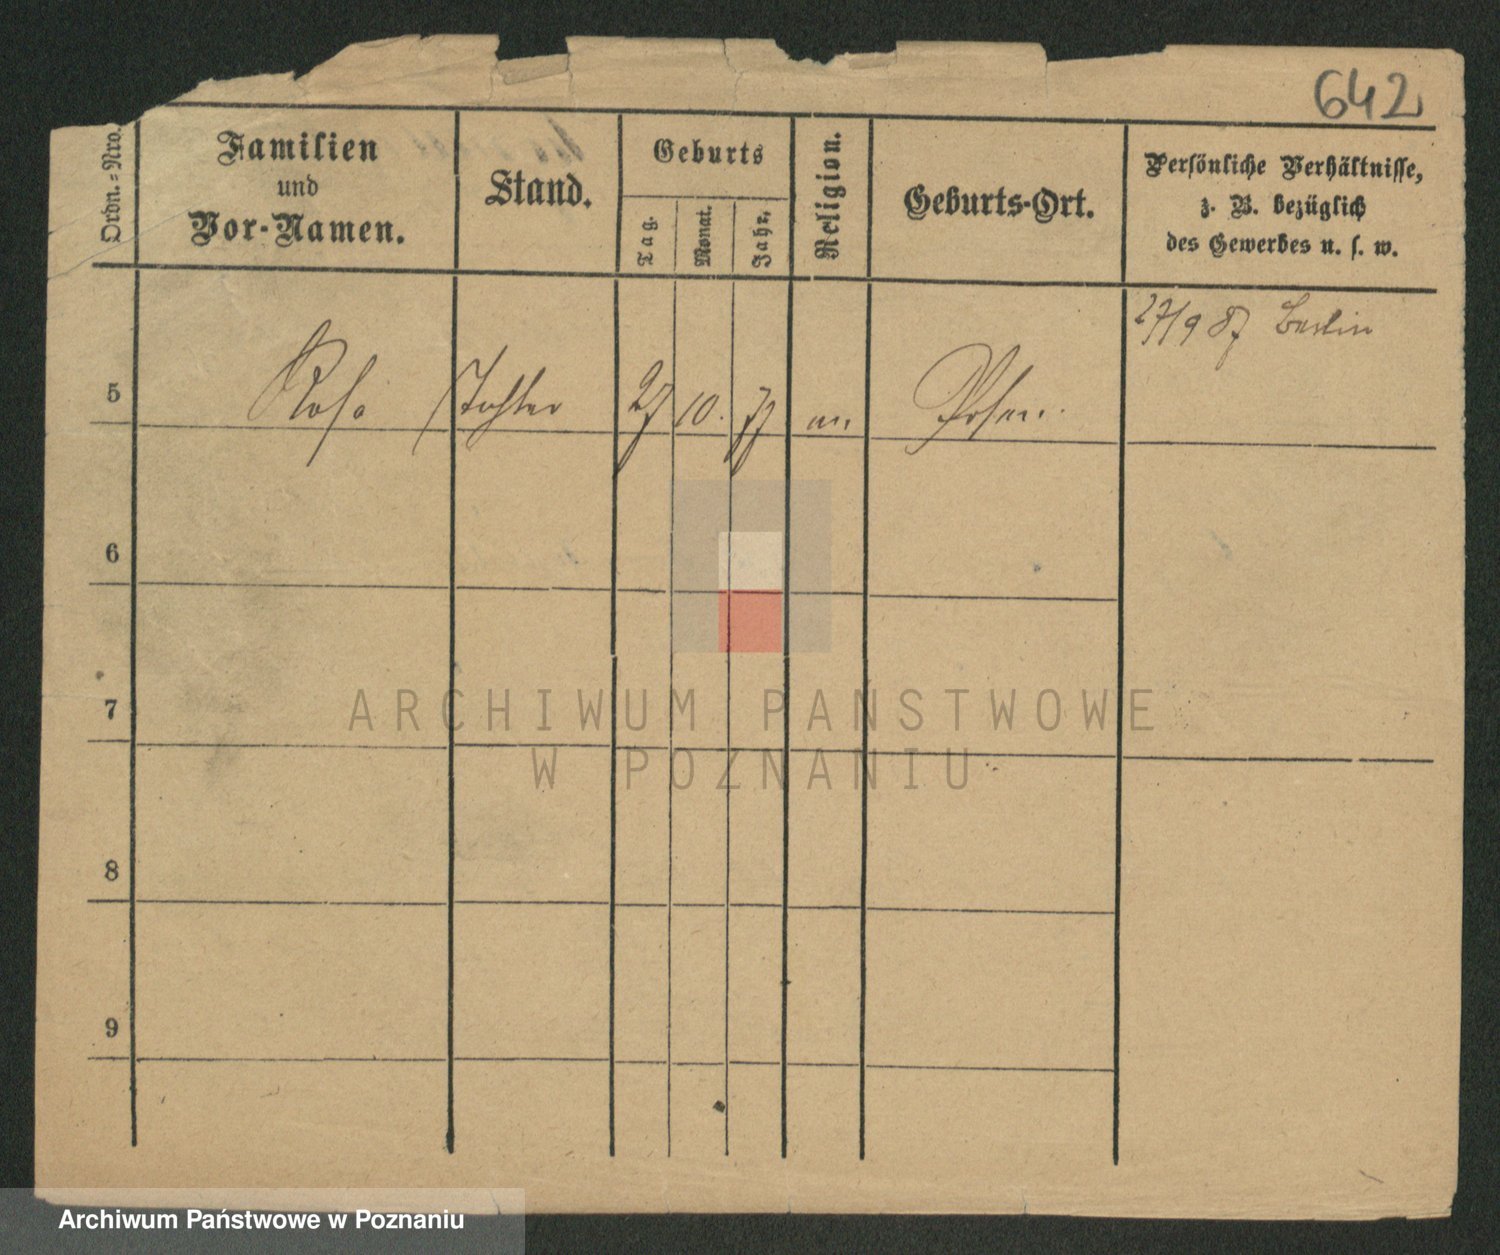 642
Ordn.=Nro.
Familien
und
Vor-Namen.
Stand.
Geburts
Tag.
Monat.
Jahr.
Religion.
Geburts-Ort.
Persönliche Verhältnisse,
z. B. bezüglich
des Gewerbes u. s. w.
27/9 87 Berlin
5 Rosa Tochter 27 10. 77 Posen.
6
7
8
9
ARCHIWUM PAŃSTWOWE
W POZNANIU
Archiwum Państwowe w Poznaniu